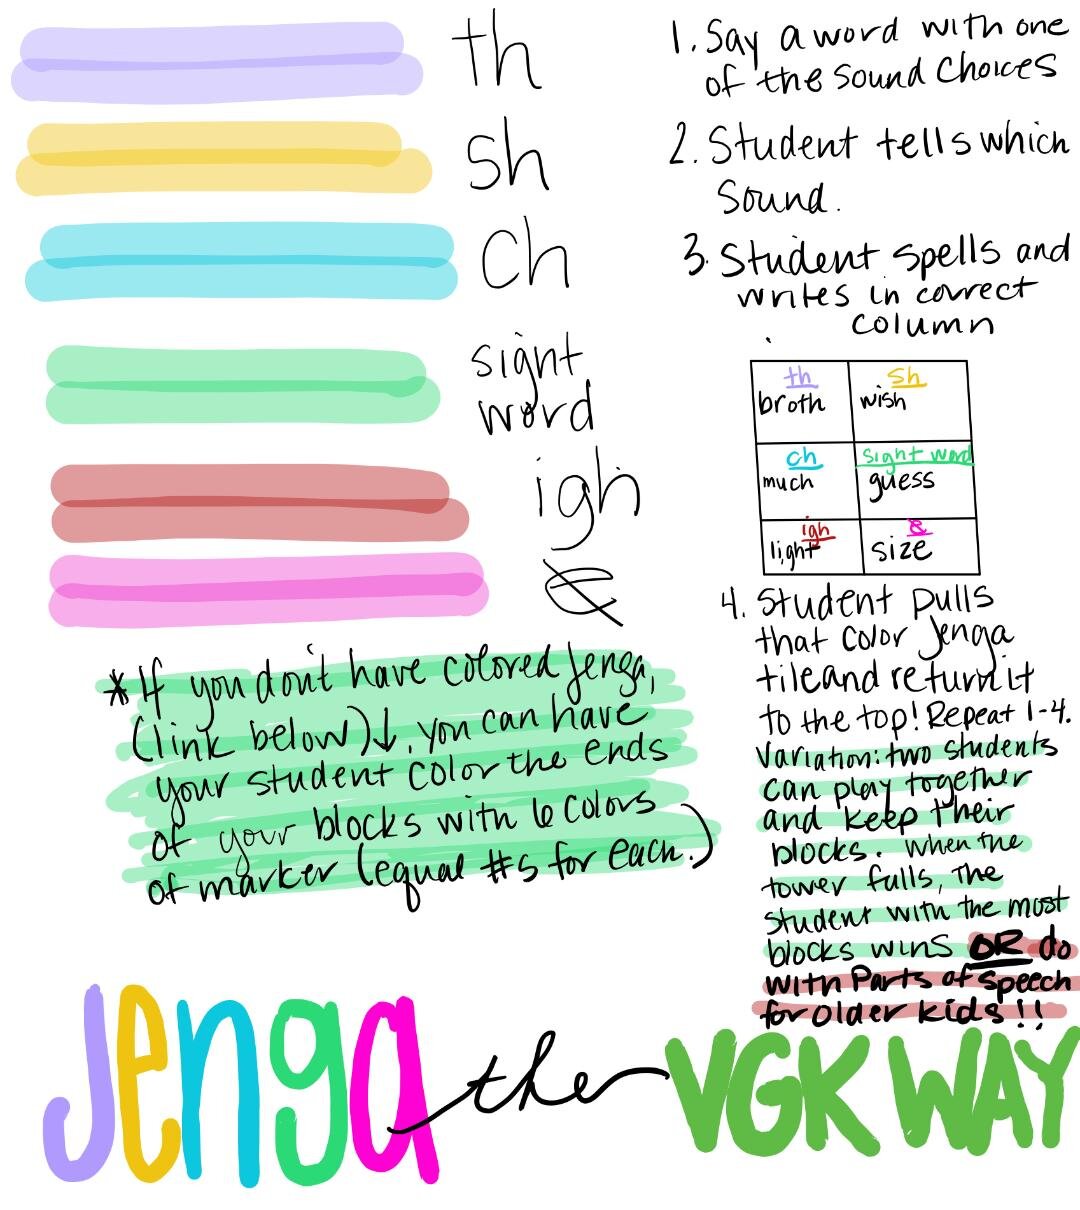 th
sh
ch
sight
word
igh
e̸
*If you don't have colored Jenga,
(link below)↓, you can have
your student color the ends
of your blocks with 6 colors
of marker (equal #s for each.)
1. Say a word with one
of the sound choices
2. Student tells which
sound.
3. Student spells and
writes in correct
column
th sh
broth wish
ch sight word
much guess
igh e̸
light size
4. Student pulls
that color Jenga
tile and return it
to the top! Repeat 1-4.
Variation: two students
can play together
and keep their
blocks. When the
tower falls, the
student with the most
blocks wins OR do
with Parts of speech
for older kids!!
Jenga the VGK WAY